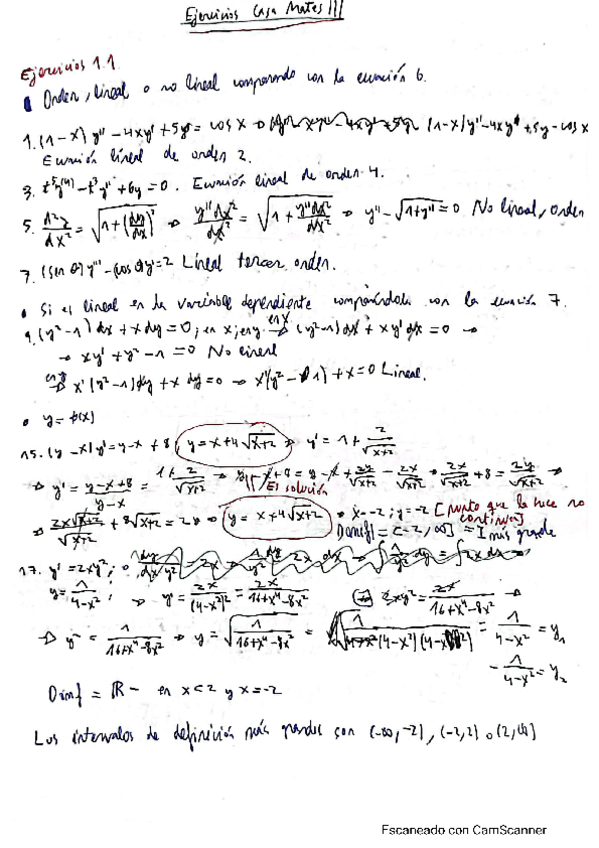 Ejercicios Casa Mates III
Ejercicios 1.1
Orden, lineal o no lineal comparando con la ecuación 6.
1. (1-x) y'' - 4xy' + 5y = cos x → (1-x)y'' - 4xy' + 5y - cos x
Ecuación lineal de orden 2.
3. t⁵y⁽⁴⁾ - t³y'' + 6y = 0. Ecuación lineal de orden 4.
5. d²y/dx² = √(1+(dy/dx)²) → y''dx²/dx² = √(1+ y''dx²/dx²) → y'' - √(1+y'') = 0 No lineal, orden
7. (sen θ)y''' - (cos θ)y' = 2 Lineal tercer orden.
• Si es lineal en la variable dependiente comparándola con la ecuación 7.
9. (y²-1) dx + x dy = 0; en x; en y. en x → (y²-1) dx + xy' dx = 0 →
→ xy' + y² - 1 = 0 No lineal
en y → x'(y²-1) dy + x dy = 0 → x'(y²-1) + x = 0 Lineal.
o y = f(x)
15. (y-x)y' = y-x+8; y = x+4√(x+2) → y' = 1+ 2/√(x+2)
→ y' = (y-x+8)/(y-x) = 1+ 2/√(x+2) → y - x + 8 = y - x + 2y/√(x+2) - 2x/√(x+2) → 2x/√(x+2) + 8 = 2y/√(x+2) →
Es solución
→ 2x√(x+2)/√(x+2) + 8√(x+2) = 2y → y = x+4√(x+2) → x=-2; y=-2 [punto que la hace no continua]
Dom f = (-2, ∞) = I más grande
17. y' = 2xy²;
y = 1/(4-x²); → y' = 2x/(4-x²)² = 2x/(16+x⁴-8x²) 2xy² = 2x/(16+x⁴-8x²) →
→ y² = 1/(16+x⁴-8x²) → y = √(1/(16+x⁴-8x²)) = √(1/((4-x²)(4-x²))) = 1/(4-x²) = y₁
- 1/(4-x²) = y₂
Dom f = ℝ - en x<2 y x=-2
Los intervalos de definición más grandes son (-∞,-2), (-2,2) o (2,∞)
Escaneado con CamScanner